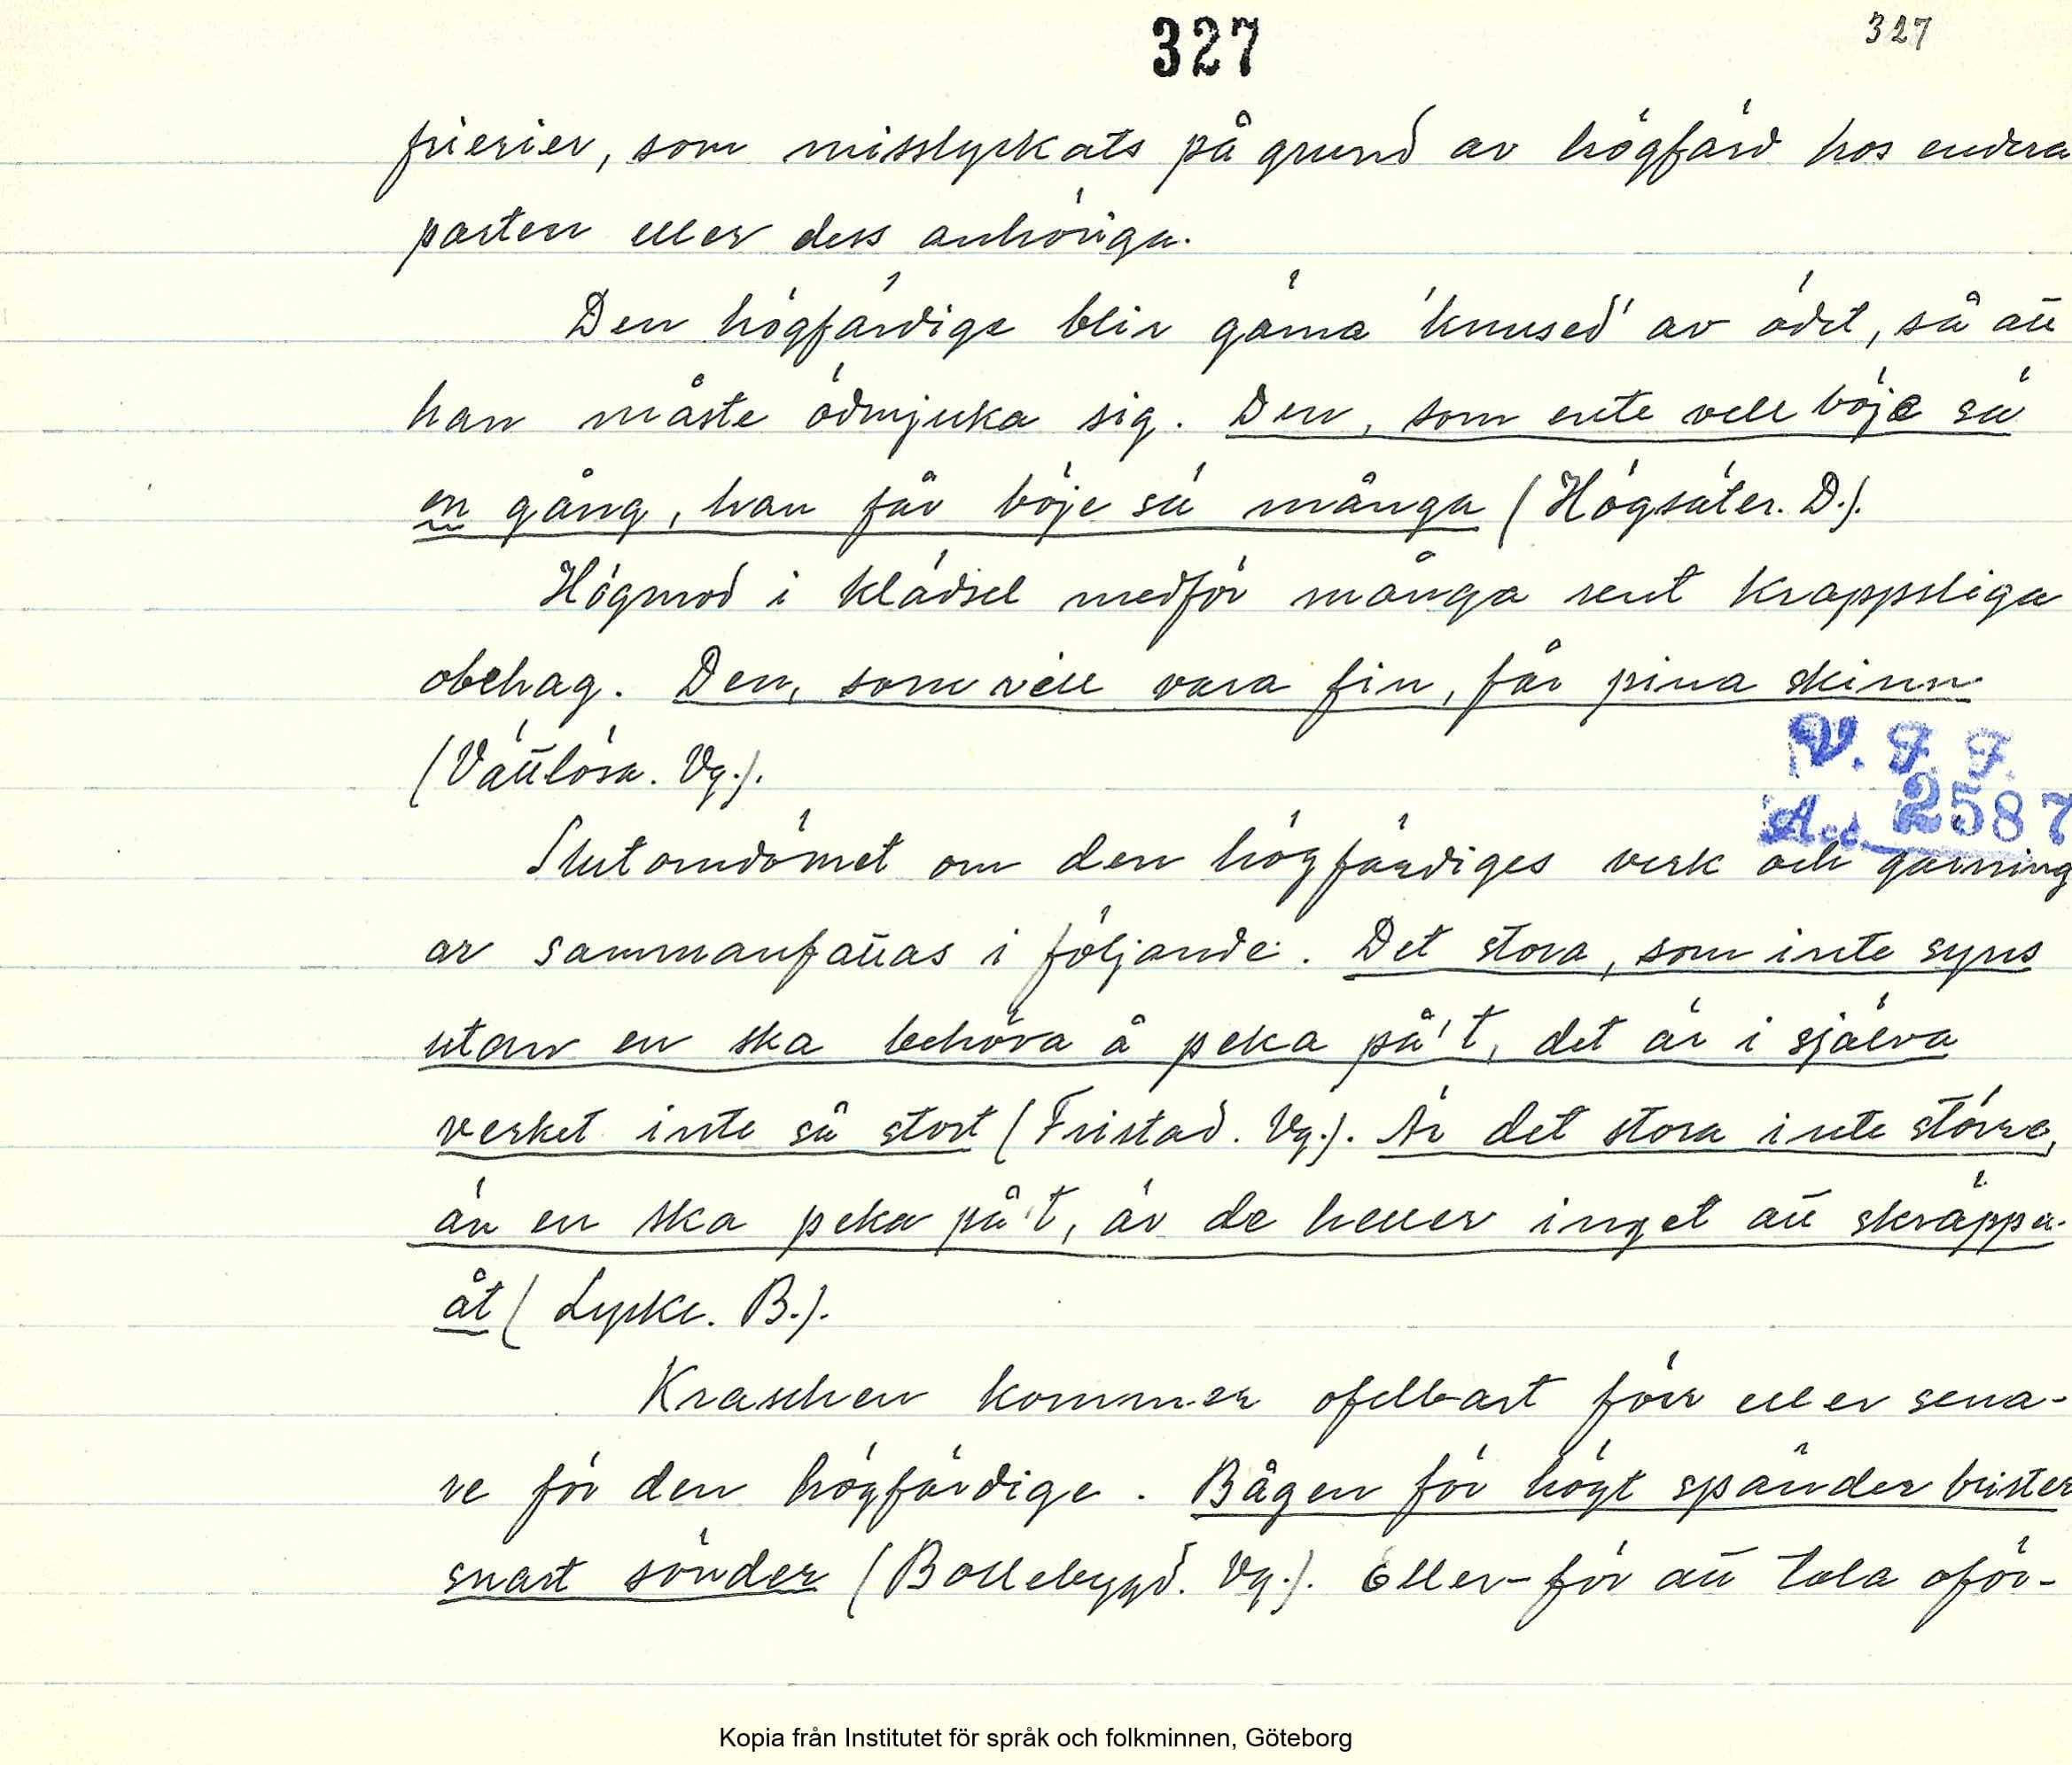 327
327
frierier, som misslyckats på grund av högfärd hos endera
parten eller dess anhöriga.
Den högfärdige blir gärna 'knused' av ödet, så att
han måste ödmjuka sig. Den, som ente vell böje sä
en gång, han får böje sä många (Högsäter. D.).
Högmod i klädsel medför många rent kroppsliga
obehag. Den, som vill vara fin, får pina skinn
(Vättlösa. Vg.).
V. F. F.
Acc. 2587
Slutomdömet om den högfärdiges verk och gärning
ar sammanfattas i följande: Det stora, som inte syns
utan en ska behöva å peka på't, det är i själva
verket inte så stort (Fristad. Vg.). Är det stora inte större,
än en ska peka på't, är de heller inget att skräppa
åt (Lycke. B.).
Kraschen kommer ofelbart förr eller sena-
re för den högfärdige. Bågen för högt spänder brister
snart sönder (Bollebygd. Vg.). Eller – för att tala oför-
Kopia från Institutet för språk och folkminnen, Göteborg